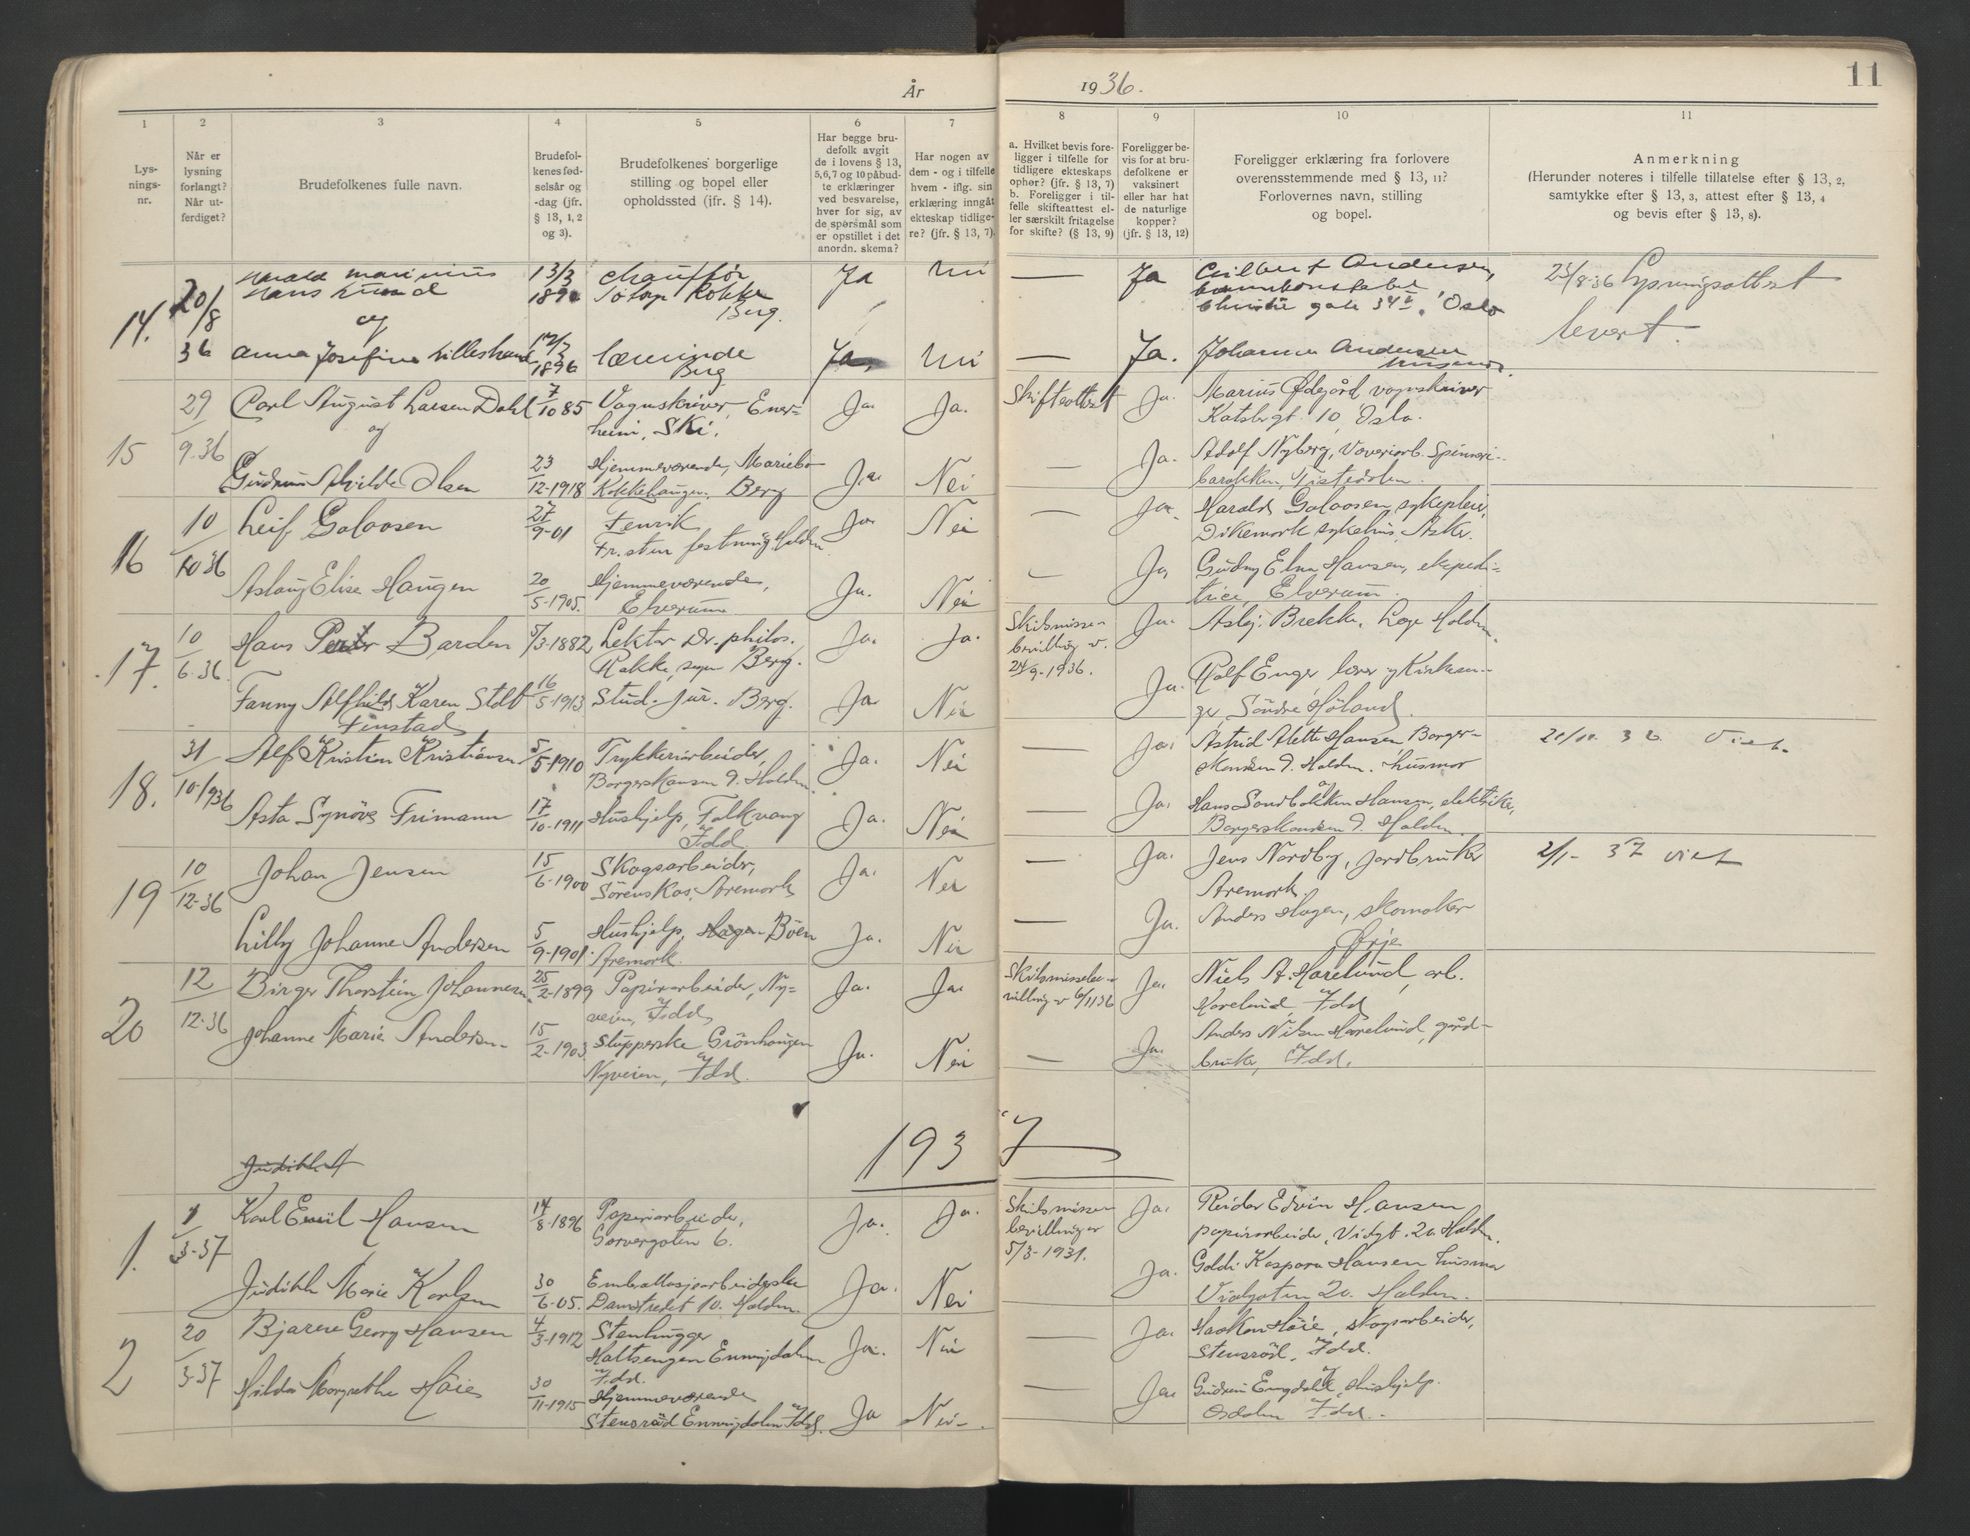 År
1936.
11
1
2
3
4
5
6
7
8
9
10
11
Lys-
nings-
nr.
Når er
lysning
forlangt?
Når ut-
ferdiget?
Brudefolkenes fulle navn.
Brudefol-
kenes fød-
selsår og
-dag (jfr.
§ 13, 1, 2
og 3).
Brudefolkenes borgerlige
stilling og bopel eller
opholdssted (ifr. § 14).
Har begge bru-
defolk avgit
de i lovens § 13,
5,6,7 og 10 påbud-
te erklæringer
ved besvarelse,
hver for sig, av
de spørsmål som
er opstillet i det
anordn. skema?
Har nogen av
dem - og i tilfelle
hvem - iflg. sin
erklæring inngåt
ekteskap tidlige-
re? (jfr. § 13, 7).
a. Hvilket bevis fore-
ligger i tilfelle for
tidligere ekteskaps
ophør? (jfr. § 13, 7)
b. Foreligger i til-
felle skifteattest el-
ler særskilt fritagelse
for skifte? (§ 13, 9)
Foreligger be-
vis for at bru-
defolkene er
vaksinert
eller har hat
de naturlige
kopper?
(jfr. § 13, 12)
Foreligger erklæring fra forlovere
overensstemmende med § 13, 11?
Forlovernes navn, stilling
og bopel.
Anmerkning
(Herunder noteres i tilfelle tillatelse efter § 13, 2,
samtykke efter § 13, 3, attest efter § 13, 4
og bevis efter § 13, 8).
14.
20/8
36
Marinius
Hans
og
13/3
chauffør
Rokke
Berg.
Ja
Nei
—
Ja
Andersen,
gate 34 Oslo
25/8-36 Lysningsattest
levert.
Anna Josefine
1896
Berg
Ja
Nei
—
Ja.
Johanne Andersen
15
29
9.36
Carl August Larsen Dahl
og
7
10 85
Vognskriver, Ener-
heim, Ski.
Ja.
Ja.
Skifteattest
Ja.
Marius Ødegård vognskriver
10, Oslo.
Gudrun Olsen
23
12-1918
Hjemmeværende, Mariebo
Rokkehaugen, Berg
Ja.
Nei
—
Ja.
Adolf Nyberg, Veveriarb. Spinneri-
barakken, Tistedalen.
16
10
10 36
Leif Galaasen
27
9-01
Fenrik
Fr.sten festning, Halden
Ja
Nei
—
Ja.
Harald Galaasen, sykepleier,
Dikemark sykehus, Asker.
Aslaug Elise Haugen
20
5-1905.
Hjemmeværende,
Elverum.
Ja.
Nei
—
Ja
Gudny Elna Hansen, ekspedi-
trice, Elverum.
17.
10
6.36.
Hans Peter Barden
5/3-1882
Lektor Dr. philos.
Rakke, Berg.
Ja.
Ja.
Skilsmisse-
bevilling v.
24/9-1936.
Ja.
Asbj. Brekke, Lege Halden.
Fanny Alfhild Karen Stdt
Finstad
16
5-1913
Stud. jur. Berg.
Ja.
Nei
Ja.
Rolf Enger, lærer,
Søndre Høland.
18.
31
10-1936
Alf Kristian Kristiansen
5
5-1910
Trykkeriarbeider,
Borgerskansen 9. Halden.
Ja.
Nei
—
Ja.
Astrid Alette Hansen, Borger-
skansen 9. Halden. husmor
36 Viet.
Asta Synöve Frimann
17
10-1911
Hushjelp, Folkvang
Idd.
Ja.
Nei
—
Ja.
Hans Sandbakken Hansen, elektriker,
Borgerskansen 9. Halden.
19
10
12-36
Johan Jensen
15
6-1900
Skogsarbeider,
Sörenskas, Aremark
Ja.
Nei
—
Ja.
Jens Nordby, jordbruker
Aremark.
2/1- 37 viet
Lilly Johanne Andersen
5
9-1901.
Hushjelp, Böen
Aremark.
Ja.
Nei
—
Ja.
Anders Hagen, skomaker
Ørje
20
12
12-36
Birger Thorstein Johannesen
25
2-1899
Papirarbeider, Ny-
veien, Idd.
Ja.
Ja.
Skilsmissebe-
villing v 6/11 36
Ja.
Niels A. Harelund, arb.
Harelund, Idd.
Johanne Marie Andersen
15
2-1903.
Stupperske Grönhaugen
Nyveien, Idd.
Ja.
Nei
—
Ja.
Anders Nilsen Harelund, gård-
bruker, Idd.
1937
Judithe A
1.
1
3-37
Karl Emil Hansen
14
8-1896
Papirarbeider,
Garvergaten 6.
Ja.
Ja.
Skilsmisse
bevillning av
5/3-1931.
Ja.
Reidar Edvin Hansen
papirarbeider, Vidgt. 20. Halden.
Judithe Marie Karlsen
30
6-05.
Emballasjearbeiderske
Damstredet 10. Halden.
Ja.
Nei
Ja.
Goldi Kaspara Hansen husmor
Vidgaten 20. Halden.
2
20
3-37
Bjarne Georg Hansen
4
3-1912
Stenhugger
Holtsengen Enningdalen
Idd.
Ja.
Nei
—
Ja.
Haakon Höie, skogsarbeider,
Stensröd, Idd.
Hilda Margrethe Höie
30
11-1915
Hjemmeværende
Stensröd Enningdalen Idd.
Ja
Nei-
—
Ja.
Gudrun Hushjelp.
Idd.